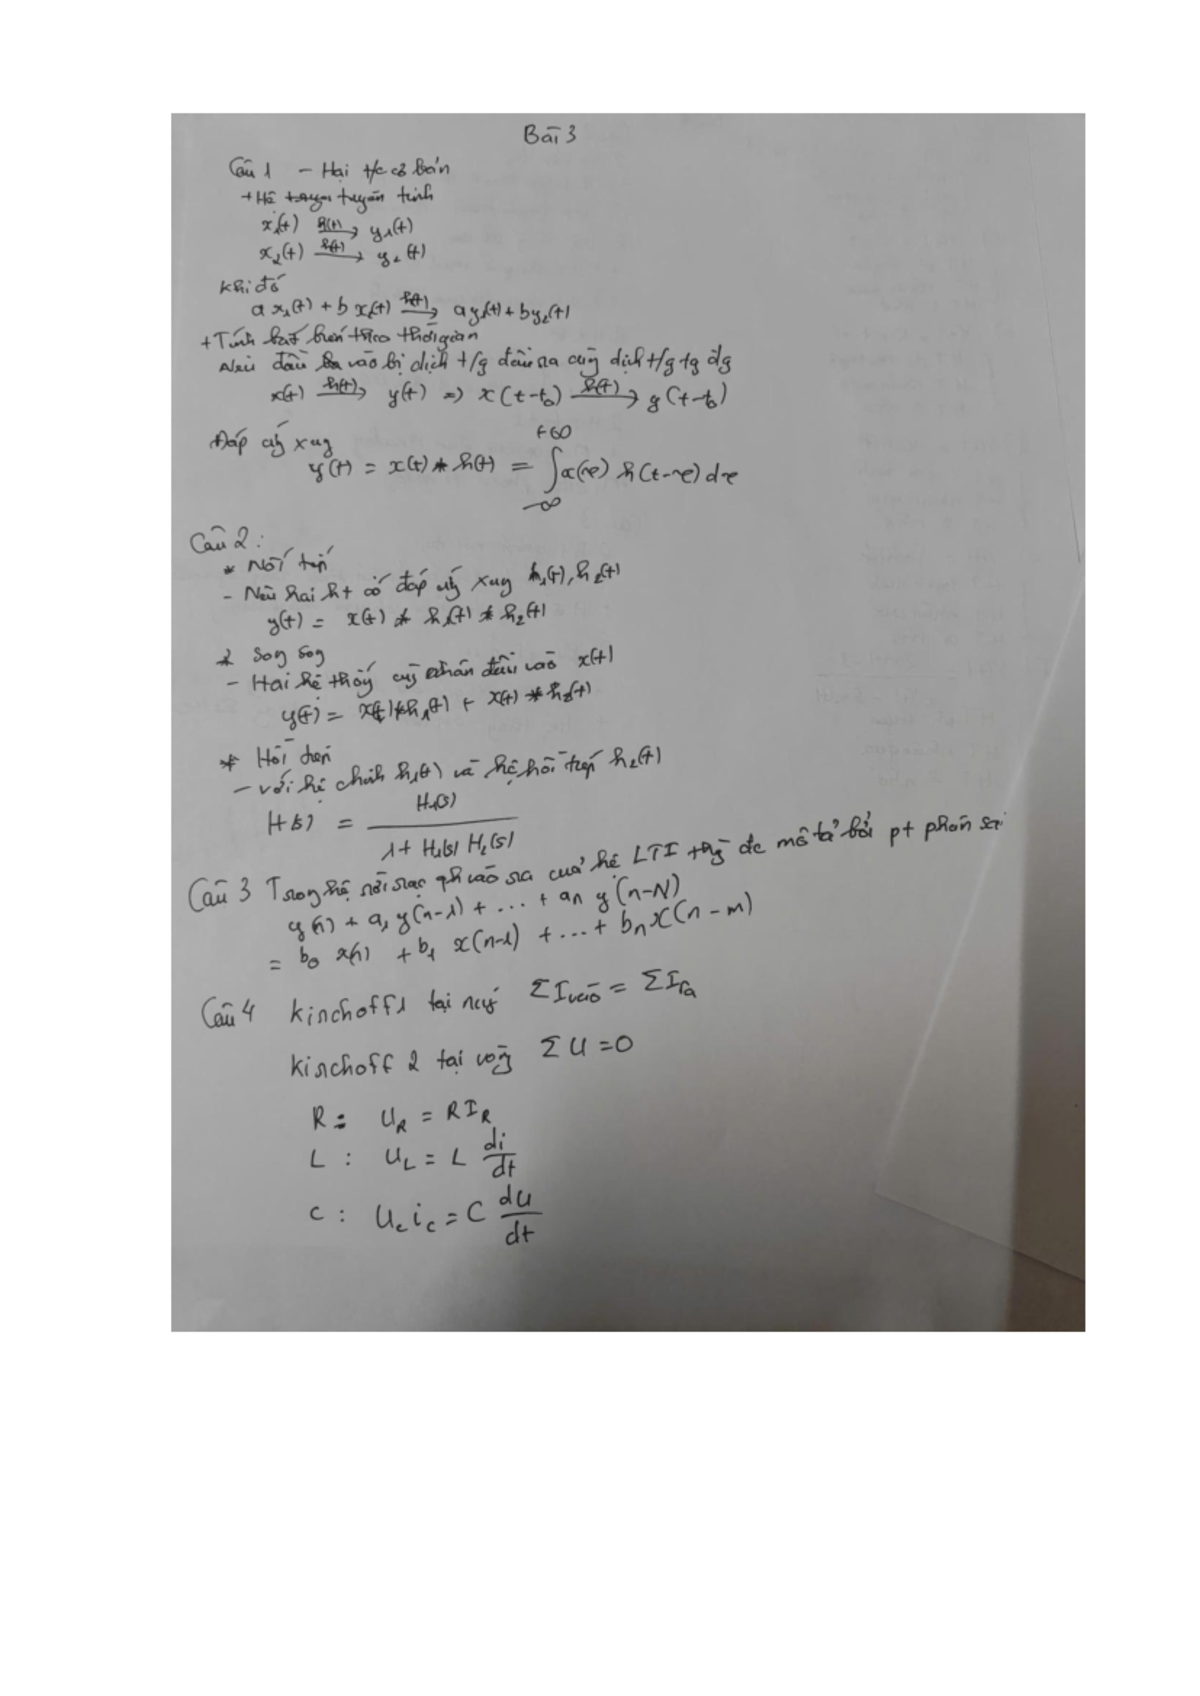 Bài 3
Câu 1 - Hai t/c cơ bản
+ Hệ tuyến tính
x₁(t) h(t)→ y₁(t)
x₂(t) h(t)→ y₂(t)
Khi đó
a x₁(t) + b x₂(t) h(t)→ ay₁(t) + by₂(t)
+ Tính bất biến theo thời gian
Nếu đầu vào bị dịch t/g đầu ra cũng dịch t/g tg đg
x(t) h(t)→ y(t) => x(t-t₀) h(t)→ y(t-t₀)
Đáp ứng xung
y(t) = x(t) * h(t) = ∫₋∞⁺∞ x(τ) h(t-τ) dτ
Câu 2:
* Nối tiếp
- Nếu hai ht có đáp ứng xung h₁(t), h₂(t)
y(t) = x(t) * h₁(t) * h₂(t)
* Song song
- Hai hệ thống cùng nhận đầu vào x(t)
y(t) = x(t) * h₁(t) + x(t) * h₂(t)
* Hồi tiếp
- với hệ chính h₁(t) và hệ hồi tiếp h₂(t)
H(s) = H₁(s) / (1 + H₁(s) H₂(s))
Câu 3 Trong hệ rời rạc qh vào ra của hệ LTI thg đc mô tả bởi pt phân sai
y(n) + a₁ y(n-1) + ... + aₙ y(n-N)
= b₀ x(n) + b₁ x(n-1) + ... + bₙ x(n-m)
Câu 4 Kirchoff 1 tại nút ΣIvào = ΣIra
Kirchoff 2 tại vòng ΣU = 0
R: U_R = RI_R
L: U_L = L di/dt
C: U_c i_c = C du/dt